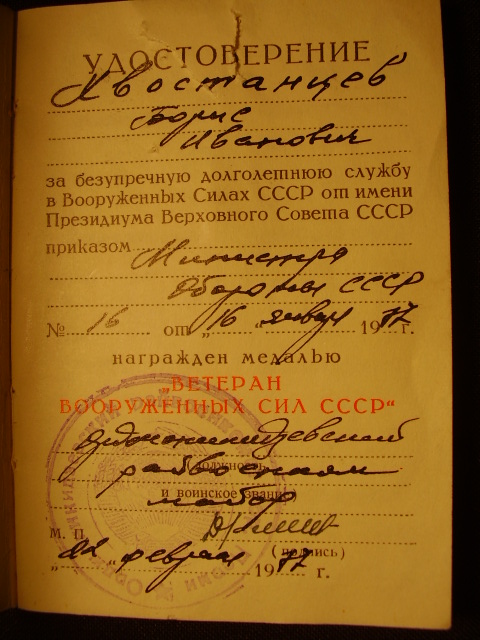 УДОСТОВЕРЕНИЕ
Хвостанцев
Борис
Иванович
за безупречную долголетнюю службу
в Вооруженных Силах СССР от имени
Президиума Верховного Совета СССР
приказом Министра
Обороны СССР
№ 16 от „16 “ январ 1977 г.
награжден медалью
„ВЕТЕРАН
ВООРУЖЕННЫХ СИЛ СССР“
Орджоникидзевский
райвоенком
(должность
и воинское звание)
майор
М. П.
(подпись)
„22 „ февраля 1977 г.